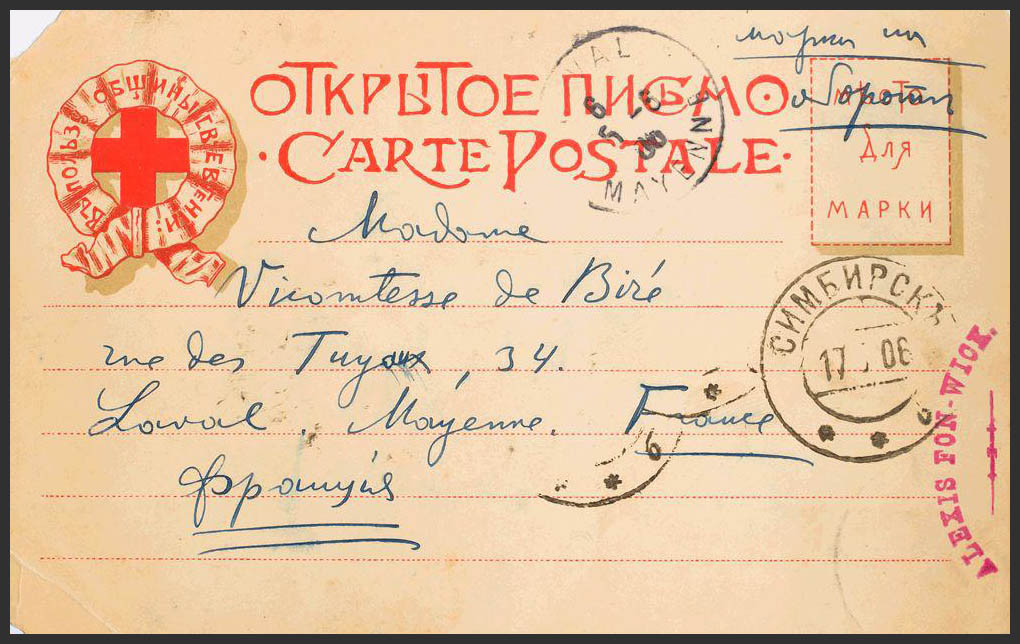 марки на
обороте
ОТКРЫТОЕ ПИСЬМО
CARTE POSTALE
ВЪ ПОЛЬЗУ ОБЩИНЫ СВ. ЕВГЕНІИ.
МѢСТО
ДЛЯ
МАРКИ
MAYENNE
Madame
Vicomtesse de Biré
rue des Tuyaux, 34.
Laval. Mayenne. France
Франція
СИМБИРСКЪ
17 06
6
ALEXIS FON-WICK.